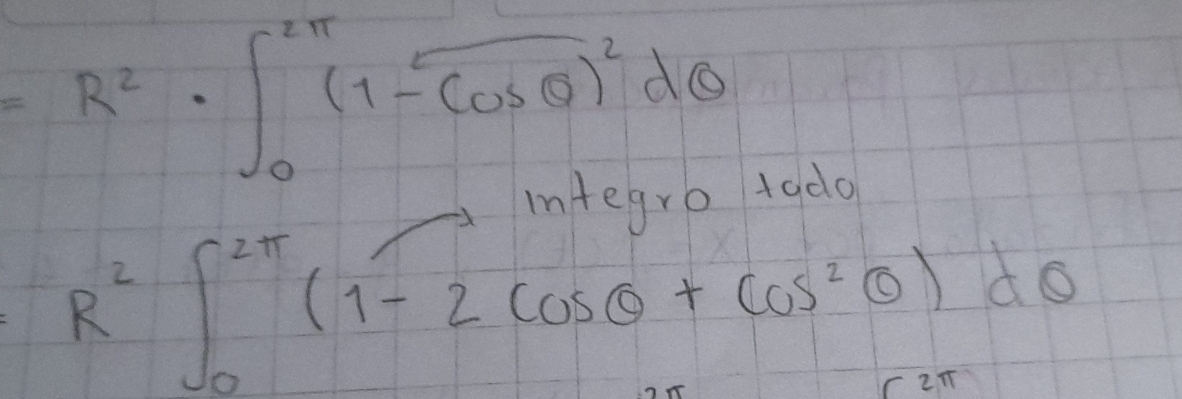 = R² · ∫₀^2π (1 - Cos θ)² dθ
integro todo
= R² ∫₀^2π (1 - 2 Cos θ + Cos² θ) dθ
2π ∫^2π